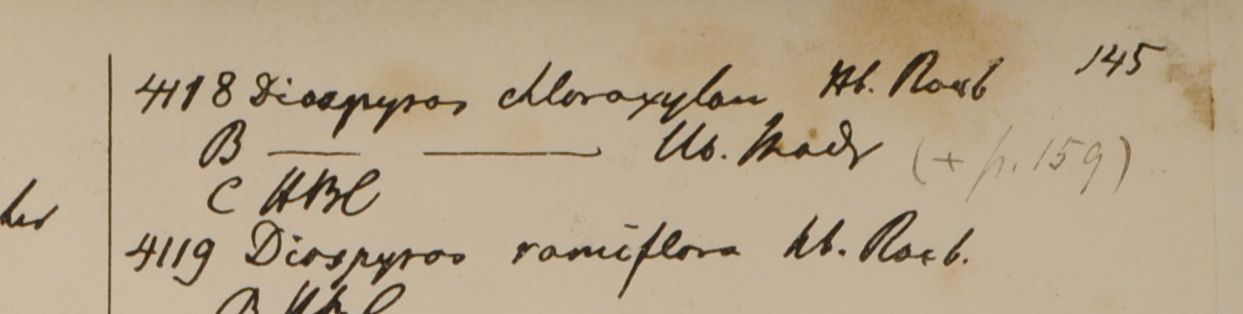 145
4118 Diospyros chloroxylon Hb. Roxb
B —— —— Hb. Madr (+ p. 159)
C HBC
4119 Diospyros ramiflora hb. Roxb.
B HBC